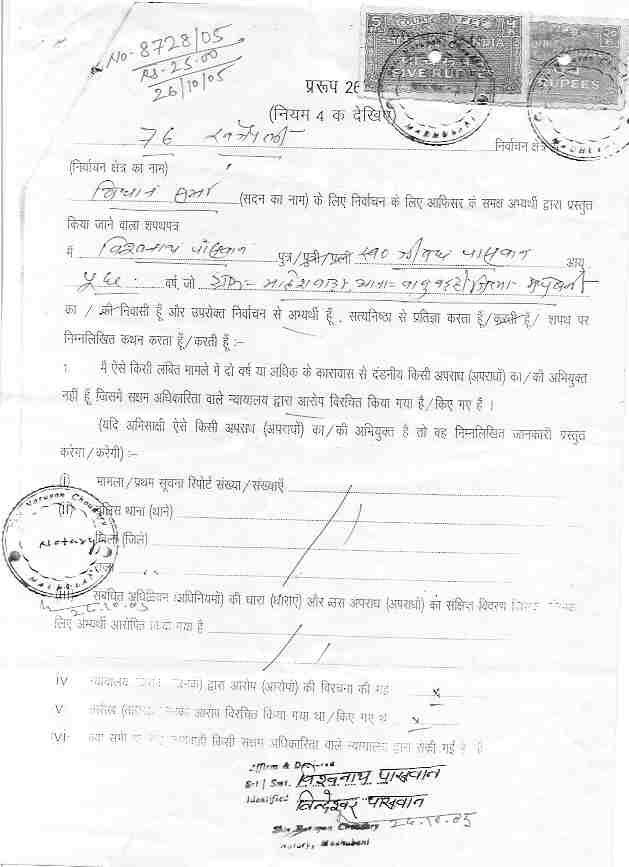 No-8728/05
Rs-25.00
26/10/05
FIVE RUPEES
INDIA
RUPEES
प्ररूप 26
(नियम 4 क देखिए)
76
निर्वाचन क्षेत्र
(निर्वाचन क्षेत्र का नाम)
विधान सभा (सदन का नाम) के लिए निर्वाचन के लिए आफिसर के समक्ष अभ्यर्थी द्वारा प्रस्तुत
किया जाने वाला शपथपत्र
मैं विश्वनाथ पासवान पुत्र/पुत्री/पत्नी स्व० पासवान आयु
वर्ष, जो ग्राम- थाना- जिला- मधुबनी
का / की निवासी हूँ और उपरोक्त निर्वाचन से अभ्यर्थी हूँ , सत्यनिष्ठा से प्रतिज्ञा करता हूँ/करती हूँ/ शपथ पर
निम्नलिखित कथन करता हूँ/करती हूँ :-
1. मैं ऐसे किसी लंबित मामले में दो वर्ष या अधिक के कारावास से दंडनीय किसी अपराध (अपराधों) का/की अभियुक्त
नहीं हूँ जिसमें सक्षम अधिकारिता वाले न्यायालय द्वारा आरोप विरचित किया गया है/किए गए हैं ।
(यदि अभिसाक्षी ऐसे किसी अपराध (अपराधों) का/की अभियुक्त है तो वह निम्नलिखित जानकारी प्रस्तुत
करेगा/करेगी) :-
(I) मामला/प्रथम सूचना रिपोर्ट संख्या/संख्याएँ
(II) पुलिस थाना (थाने)
जिला (जिले)
राज्य
(III) संबंधित अधिनियम (अधिनियमों) की धारा (धाराएं) और उस अपराध (अपराधों) का संक्षिप्त विवरण
26.10.05
लिए अभ्यर्थी आरोपित किया गया है
IV न्यायालय द्वारा आरोप (आरोपों) की विरचना की गई x
V तारीख आरोप विरचित किया गया था/किए गए थे x
VI: क्या सभी या कोई कार्यवाही किसी सक्षम अधिकारिता वाले न्यायालय द्वारा रोकी गई है
Narayan Choudhary
Notary
MADHUBANI
Affirm &
Sri/Smt. विश्वनाथ पासवान
Identified विन्देश्वर पासवान
Shiv Narayan Choudhary 26.10.05
Notary, Madhubani